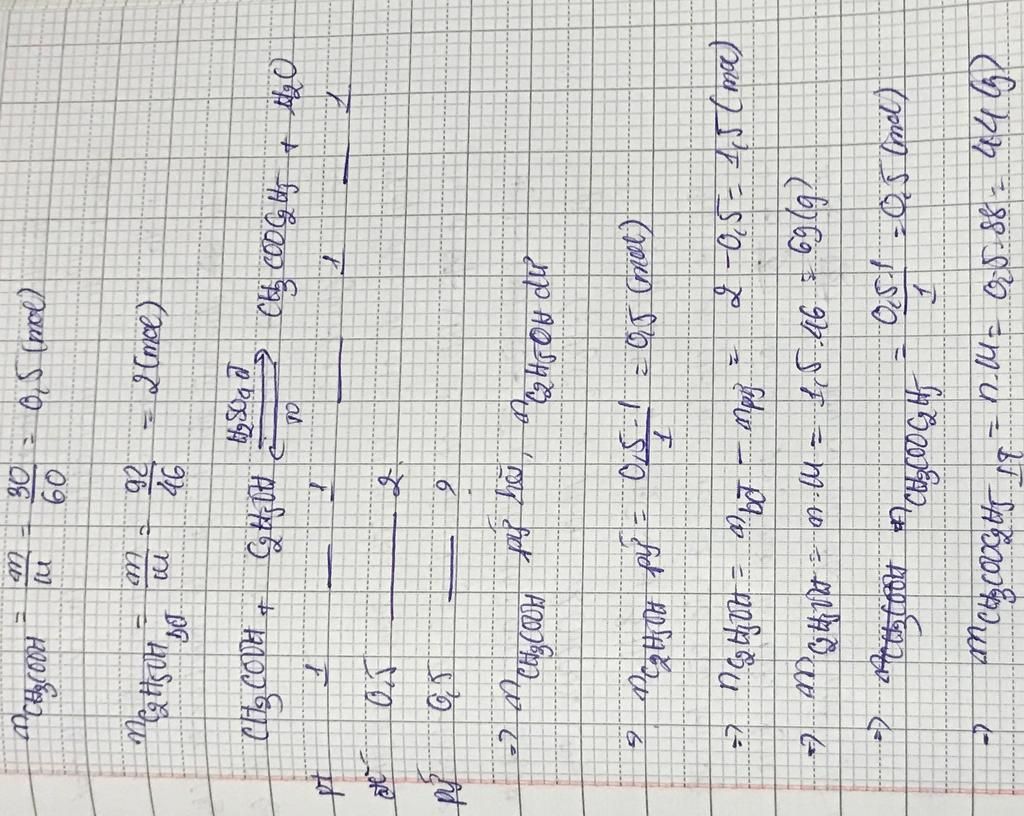 nCH3COOH = m/M = 30/60 = 0,5 (mol)
nC2H5OH bđ = m/M = 92/46 = 2 (mol)
CH3COOH + C2H5OH ⇌ (H2SO4 đ, to) CH3COOC2H5 + H2O
pt 1 — 1 — 1 — 1
0,5 — 2
pứ 0,5 — ?
=> nCH3COOH pứ hết, nC2H5OH dư
=> nC2H5OH pứ = 0,5.1/1 = 0,5 (mol)
=> nC2H5OH = nbđ - npứ = 2 - 0,5 = 1,5 (mol)
=> mC2H5OH = n.M = 1,5.46 = 69 (g)
=> nCH3COOC2H5 = 0,5.1/1 = 0,5 (mol)
=> mCH3COOC2H5 LT = n.M = 0,5.88 = 44 (g)